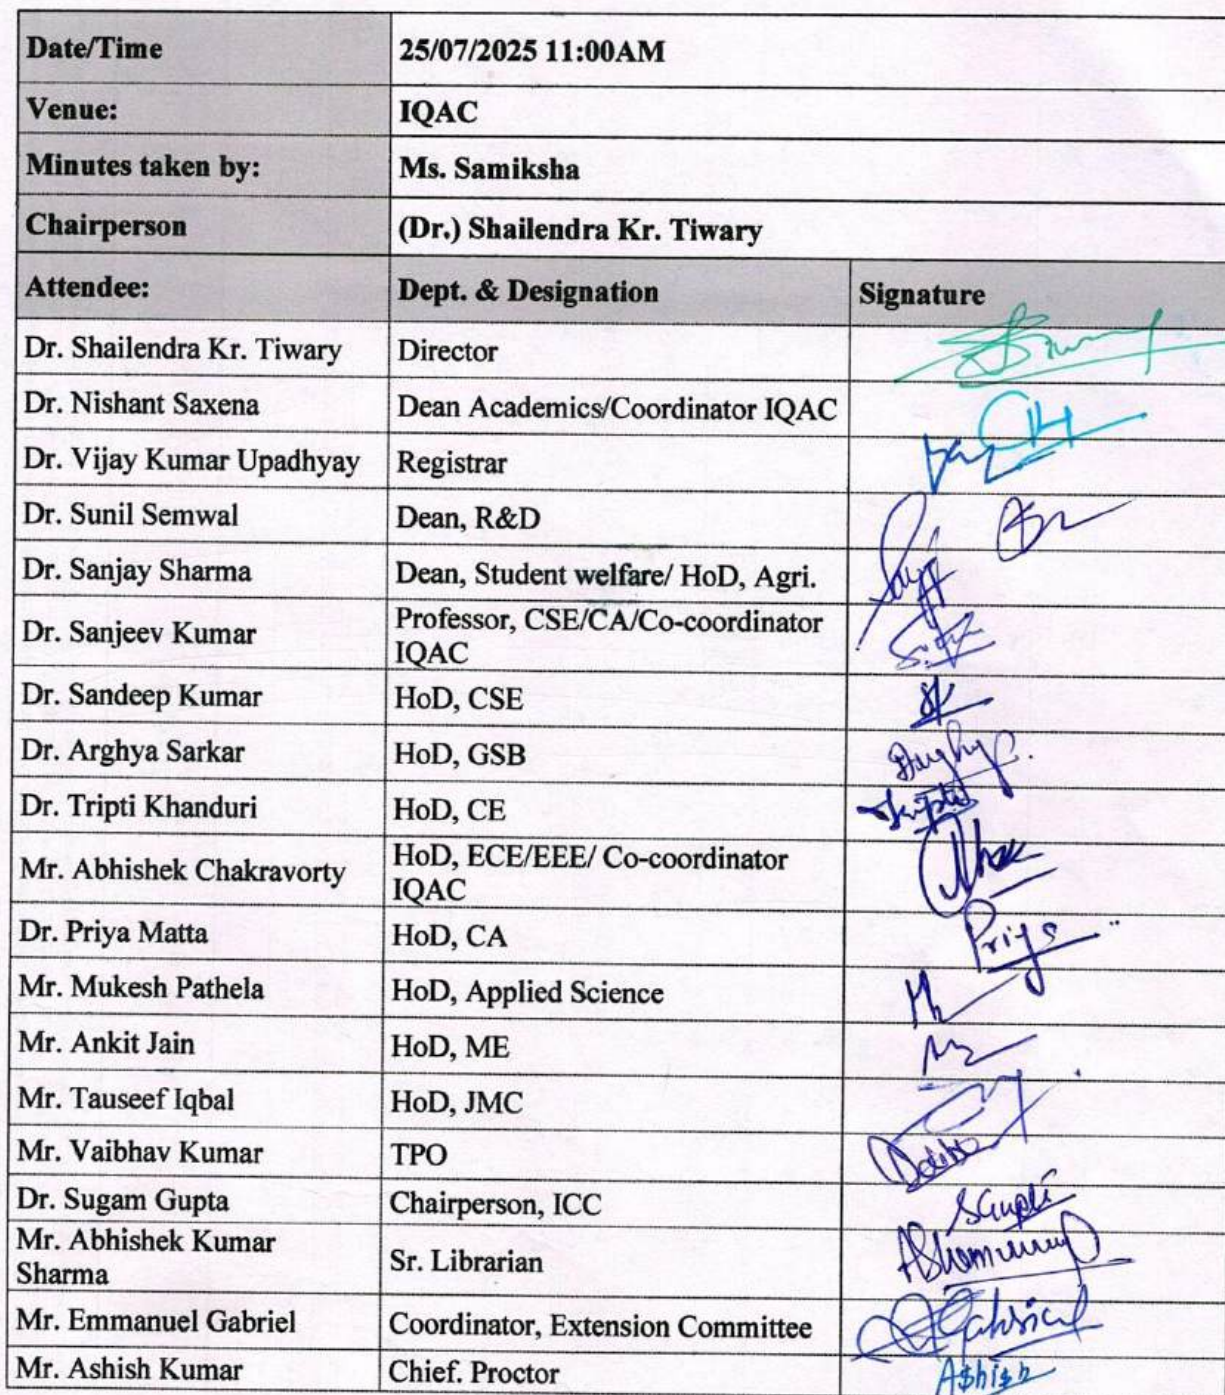 Date/Time 25/07/2025 11:00AM
Venue: IQAC
Minutes taken by: Ms. Samiksha
Chairperson (Dr.) Shailendra Kr. Tiwary
Attendee: Dept. & Designation Signature
Dr. Shailendra Kr. Tiwary Director
Dr. Nishant Saxena Dean Academics/Coordinator IQAC
Dr. Vijay Kumar Upadhyay Registrar
Dr. Sunil Semwal Dean, R&D
Dr. Sanjay Sharma Dean, Student welfare/ HoD, Agri.
Dr. Sanjeev Kumar Professor, CSE/CA/Co-coordinator
IQAC
Dr. Sandeep Kumar HoD, CSE SK
Dr. Arghya Sarkar HoD, GSB
Dr. Tripti Khanduri HoD, CE
Mr. Abhishek Chakravorty HoD, ECE/EEE/ Co-coordinator
IQAC
Dr. Priya Matta HoD, CA Priya
Mr. Mukesh Pathela HoD, Applied Science
Mr. Ankit Jain HoD, ME
Mr. Tauseef Iqbal HoD, JMC
Mr. Vaibhav Kumar TPO
Dr. Sugam Gupta Chairperson, ICC SGupta
Mr. Abhishek Kumar
Sharma Sr. Librarian
Mr. Emmanuel Gabriel Coordinator, Extension Committee Gabriel
Mr. Ashish Kumar Chief. Proctor Ashish